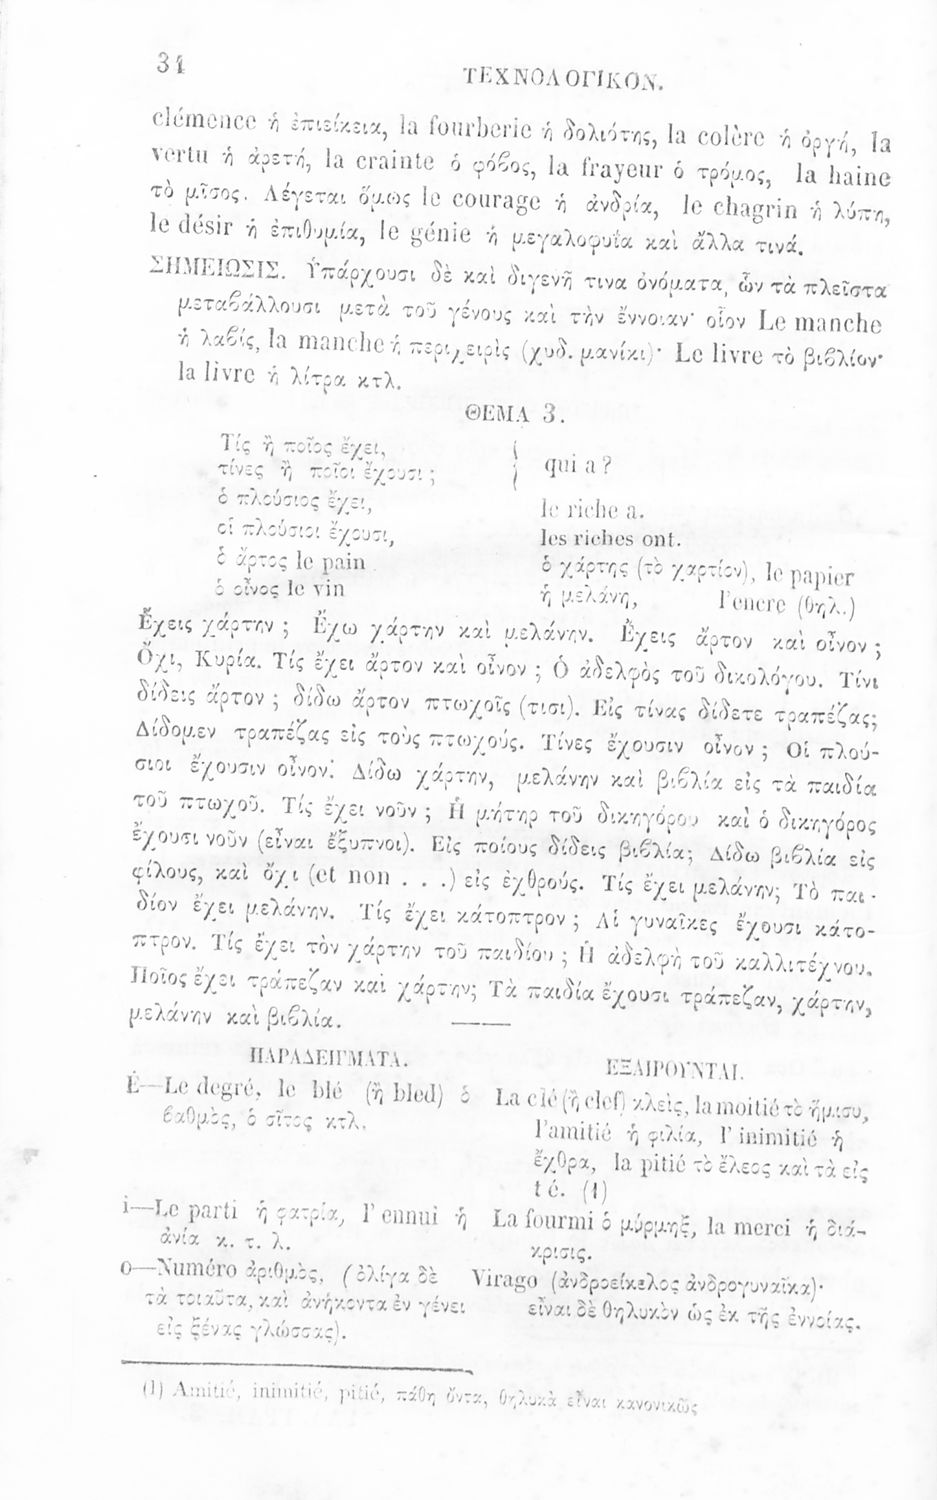 34
ΤΕΧΝΟΛΟΓΙΚΟΝ.
clémence ἡ ἐπιείκεια, la fourberie ἡ δολιότης, la colère ἡ ὀργή, la
vertu ἡ ἀρετή, la crainte ὁ φόβος, la frayeur ὁ τρόμος, la haine
τὸ μῖσος. Λέγεται ὅμως le courage ἡ ἀνδρία, le chagrin ἡ λύπη,
le désir ἡ ἐπιθυμία, le génie ἡ μεγαλοφυΐα καὶ ἄλλα τινά.
ΣΗΜΕΙΩΣΙΣ. Ὑπάρχουσι δὲ καὶ διγενῆ τινα ὀνόματα, ὧν τὰ πλεῖστα
μεταβάλλουσι μετὰ τοῦ γένους καὶ τὴν ἔννοιαν· οἷον Le manche
ἡ λαβίς, la manche ἡ περιχειρὶς (χυδ. μανίκι)· Le livre τὸ βιβλίον·
la livre ἡ λίτρα κτλ.
ΘΕΜΑ 3.
Τίς ἢ ποῖος ἔχει,
τίνες ἢ ποῖοι ἔχουσι ;
qui a ?
ὁ πλούσιος ἔχει, le riche a.
οἱ πλούσιοι ἔχουσι, les riches ont.
ὁ ἄρτος le pain ὁ χάρτης (τὸ χαρτίον), le papier
ὁ οἶνος le vin ἡ μελάνη, l'encre (θηλ.)
Ἔχεις χάρτην ; Ἔχω χάρτην καὶ μελάνην. Ἔχεις ἄρτον καὶ οἶνον ;
Ὄχι, Κυρία. Τίς ἔχει ἄρτον καὶ οἶνον ; Ὁ ἀδελφὸς τοῦ δικολόγου. Τίνι
δίδεις ἄρτον ; δίδω ἄρτον πτωχοῖς (τισι). Εἰς τίνας δίδετε τραπέζας;
Δίδομεν τραπέζας εἰς τοὺς πτωχούς. Τίνες ἔχουσιν οἶνον ; Οἱ πλού-
σιοι ἔχουσιν οἶνον. Δίδω χάρτην, μελάνην καὶ βιβλία εἰς τὰ παιδία
τοῦ πτωχοῦ. Τίς ἔχει νοῦν ; Ἡ μήτηρ τοῦ δικηγόρου καὶ ὁ δικηγόρος
ἔχουσι νοῦν (εἶναι ἔξυπνοι). Εἰς ποίους δίδεις βιβλία; Δίδω βιβλία εἰς
φίλους, καὶ ὄχι (et non . . .) εἰς ἐχθρούς. Τίς ἔχει μελάνην; Τὸ παι-
δίον ἔχει μελάνην. Τίς ἔχει κάτοπτρον ; Αἱ γυναῖκες ἔχουσι κάτο-
πτρον. Τίς ἔχει τὸν χάρτην τοῦ παιδίου ; Ἡ ἀδελφὴ τοῦ καλλιτέχνου.
Ποῖος ἔχει τράπεζαν καὶ χάρτην; Τὰ παιδία ἔχουσι τράπεζαν, χάρτην,
μελάνην καὶ βιβλία.
ΠΑΡΑΔΕΙΓΜΑΤΑ.
É—Le degré, le blé (ἢ bled) ὁ
βαθμὸς, ὁ σῖτος κτλ.
i—Le parti ἡ φατρία, l'ennui ἡ
ἀνία κ. τ. λ.
o—Numéro ἀριθμὸς, (ὀλίγα δὲ
τὰ τοιαῦτα, καὶ ἀνήκοντα ἐν γένει
εἰς ξένας γλώσσας).
ΕΞΑΙΡΟΥΝΤΑΙ.
La clé (ἢ clef) κλεὶς, la moitié τὸ ἥμισυ,
l'amitié ἡ φιλία, l'inimitié ἡ
ἔχθρα, la pitié τὸ ἔλεος καὶ τὰ εἰς
té. (1)
La fourmi ὁ μύρμηξ, la merci ἡ διά-
κρισις.
Virago (ἀνδροείκελος ἀνδρογυναῖκα)·
εἶναι δὲ θηλυκὸν ὡς ἐκ τῆς ἐννοίας.
(1) Amitié, inimitié, pitié, πάθη ὄντα, θηλυκὰ εἶναι κανονικῶς